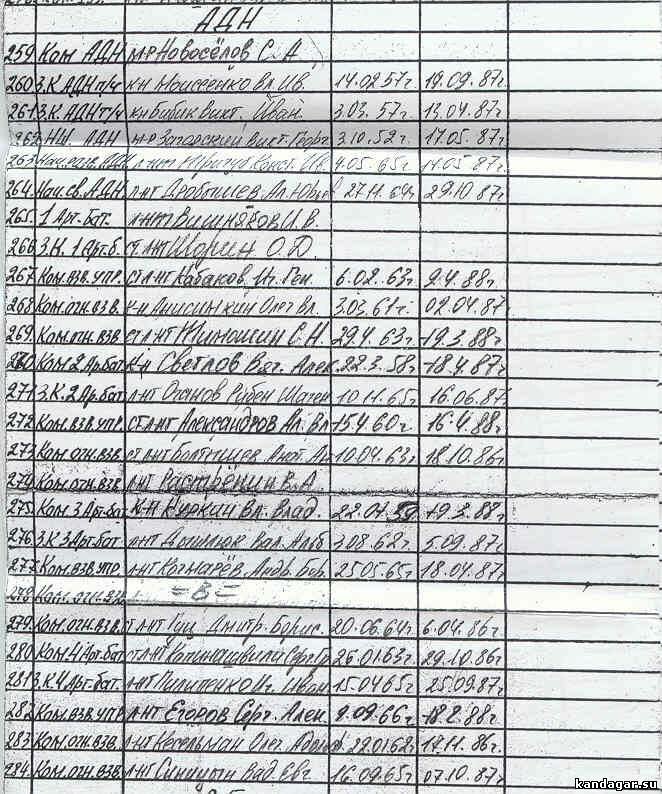 АДН
259 Ком АДН м-р Новосёлов С. А
260 З.К АДН п/ч к-н Моисеенко Вл. Ив. 14.02.57г. 19.09.87г.
261 З.К АДН т/ч к-н Бибик Викт. Иван. 3.03.57г. 13.04.87г.
262 НШ. АДН м-р Загорский Викт. Георг 3.10.52г. 17.05.87г.
263 АДН 4.05.65г. 87г.
264 Нач.св. АДН л-нт Дробышев Ал. Юрьев 27.11.64г. 29.10.87г.
265. 1 Арт. бат. л-нт Вишняков И. В.
266 З.К. 1 Арт.б. ст л-нт Шорин О. Д.
267 Ком. взв. упр. ст л-нт Кабаков Иг. Ген. 6.02.63г. 9.4.88г.
268 Ком. огн. взв. к-н Анисинский Олег Вл. 3.03.61г. 02.04.87
269. Ком. огн. взв ст л-нт Тимошин С. Н. 29.4.63г. 19.3.88г.
Ком 2 Ар. бат к-н Светлов Вяч. Алек. 22.3.58г. 18.4.87г.
271 З.К. 2 Ар. бат л-нт Оганов Рубен Шаген 10.11.65г. 16.06.87г
272 Ком. взв. упр. ст л-нт Александров Ал. Вл 15.4.60г. 16.4.88г.
273 Ком. огн. взв ст л-нт Болтышев Анат. 10.04.63г. 18.10.86г
274 Ком. огн. взв. л-нт Растрёпин В. А.
275. Ком 3 Арт. бат к-н Куркин Вл. Влад. 22.07.59 19.3.88г.
276 З.К 3 Арт. бат л-нт Данилюк Вал. Альб 3.08.62г. 5.09.87г.
277 Ком. взв. упр. л-нт Кочнарёв Андр. Бор. 25.05.65г 18.04.87г
278 Ком. огн. взв = В =
279 Ком. огн. взв. ст л-нт Гуц Дмитр. Борис. 20.06.64г 6.04.86г.
280 Ком 4 Арт. бат. ст л-нт 26.01.63г. 29.10.86г
281 З.К 4 Арт. бат. л-нт Пилипенко Иг. Иван 15.04.65г. 25.09.87г.
282 Ком. взв. упр л-нт Егоров Серг. Алек. 9.09.66г. 18.2.88г.
283 Ком. огн. взв. л-нт Косельман Олег 29.01.62г 19.11.86г.
284 Ком. огн. взв л-нт Синицын Вад. Евг. 16.09.65г 07.10.87г
kandagar.su